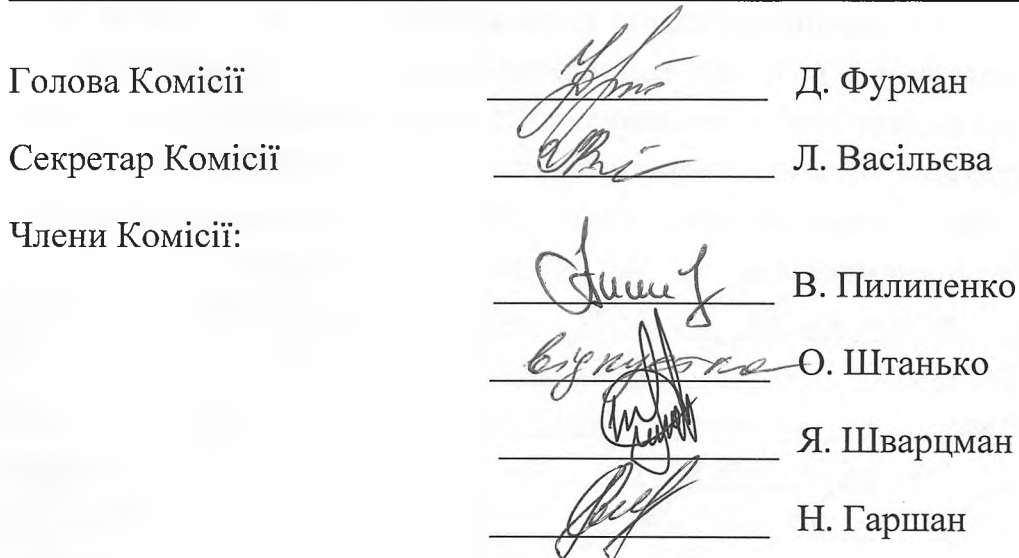 Голова Комісії Д. Фурман
Секретар Комісії Л. Васільєва
Члени Комісії:
В. Пилипенко
відпустка О. Штанько
Я. Шварцман
Н. Гаршан